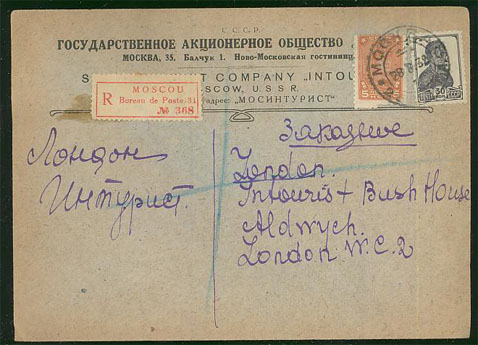 С.С.С.Р.
ГОСУДАРСТВЕННОЕ АКЦИОНЕРНОЕ ОБЩЕСТВО
МОСКВА, 35. Балчуг 1. Ново-Московская гостиница
COMPANY „INTOU
MOSCOW, U.S.S.R.
адрес: „МОСИНТУРИСТ"
MOSCOU
R Bureau de Poste 31
№ 368
50
30
Заказное
Лондон
Интурист.
London.
Intourist Bush House
Aldwych.
London W.C.2